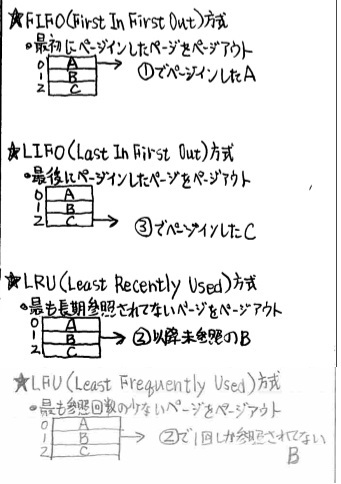 ★FIFO(First In First Out)方式
•最初にページインしたページをページアウト
0 A
1 B
2 C
①でページインしたA
★LIFO(Last In First Out)方式
•最後にページインしたページをページアウト
0 A
1 B
2 C
③でページインしたC
★LRU(Least Recently Used)方式
•最も長期参照されてないページをページアウト
0 A
1 B
2 C
②以降未参照のB
★LFU(Least Frequently Used)方式
•最も参照回数の少ないページをページアウト
0 A
1 B
2 C
②で1回しか参照されてない
B